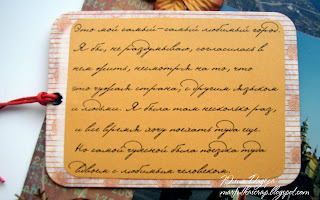 Это мой самый-самый любимый город.
Я бы, не раздумывая, согласилась в
нем жить, несмотря на то, что
это чужая страна, с другим языком
и людьми. Я была там несколько раз,
и все время хочу поехать туда еще.
Но самой чудесной была поездка туда
вдвоем с любимым человеком.
marfutkascrap.blogspot.com